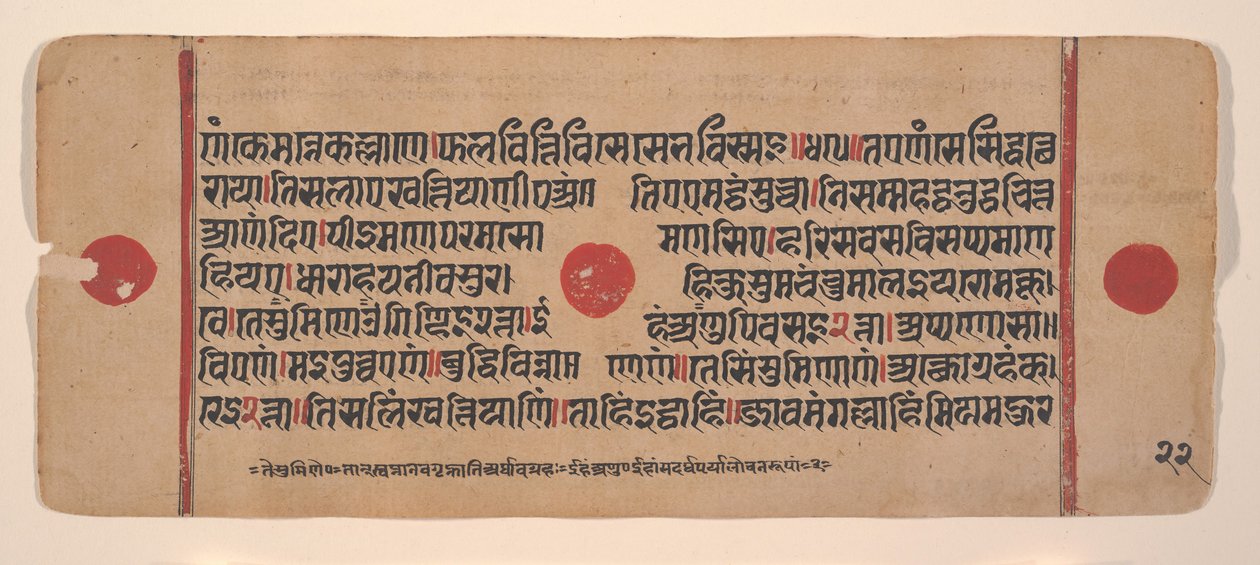 णं के मन्ने कल्लाणे । फलवित्तिविसेसे भविस्सइ ॥ ॥ तए णं से सिद्धत्थे
राया । तिसलाए खत्तियाणीए अंतिए एयमट्ठं सुच्चा । निसम्म हट्ठतुट्ठचित्ते
आणंदिए । पीइमणे परमसोमणसिए । हरिसवसविसप्पमाण
हियए । धाराहयनीवसुरहिकुसुमचंचुमालइयरोमकू
वे । ते सुमिणे ओगिण्हइ २ त्ता । ईहं अणुपविसइ २ त्ता । अप्पणो सा
विएणं । मइपुव्वएणं ॥ बुद्धिविन्नाणेणं ॥ तेसिं सुमिणाणं । अत्थोग्गहं क
रेइ २ त्ता ॥ तिसलं खत्तियाणिं ॥ ताहिं इट्ठाहिं ॥ जाव मंगल्लाहिं मियमहुर
=ते सुमिणे०=तान् स्वप्नानवगृह्णाति अर्थावग्रहः= ईहं अणु०ईहां सदर्थपर्यालोचनरूपां=२=
२२